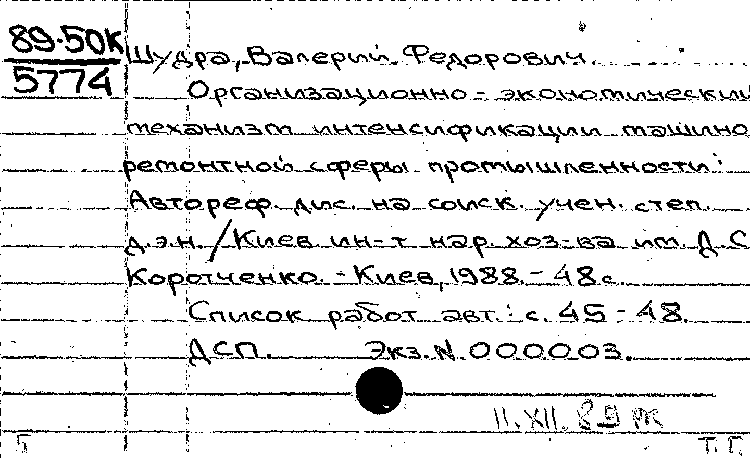 89-50К
5774
Шудра, Валерий Федорович.
Организационно-экономический
механизм интенсификации машино
ремонтной сферы промышленности:
Автореф. дис. на соиск. учен. степ.
д.э.н. / Киев. ин-т нар. хоз-ва им. Д.С
Коротченко. - Киев, 1988. - 48 с.
Список работ авт.: с. 45-48.
ДСП. Экз. N. 000003.
II.XII.89
Т. Г.